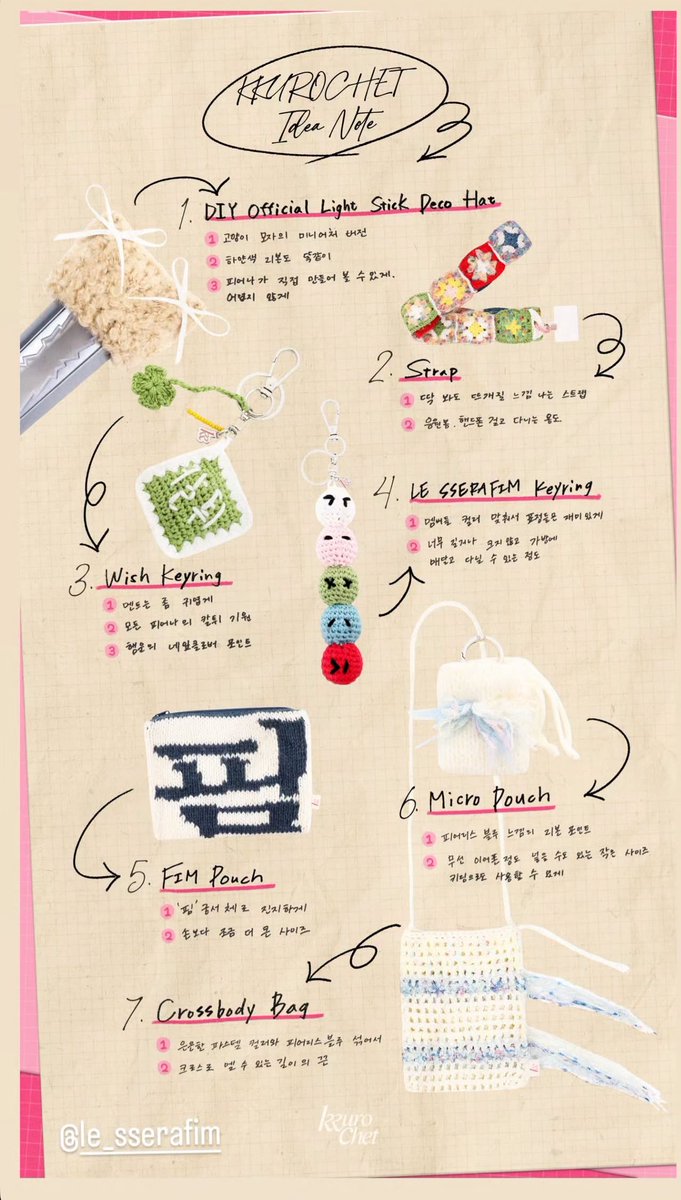 KKUROCHET
Idea Note
1. DIY Official Light Stick Deco Hat
1 고양이 모자의 미니어처 버전
2 하얀색 리본도 똑같이
3 피어나가 직접 만들어 볼 수 있게.
어렵지 않게
2. Strap
1 딱 봐도 뜨개질 느낌 나는 스트랩
2 응원봉, 핸드폰 걸고 다니는 용도
4. LE SSERAFIM Keyring
1 멤버들 컬러 맞춰서 표정들은 재미있게
2 너무 길거나 크지 않고 가방에
매달고 다닐 수 있는 정도
3. Wish Keyring
1 멘트는 좀 귀엽게
2 모든 피어나의 칼퇴 기원
3 행운의 네잎클로버 포인트
핌
6. Micro Pouch
1 피어니스 블루 느낌의 리본 포인트
2 무선 이어폰 정도 넣을 수도 있는 작은 사이즈
키링으로도 사용할 수 있게
5. FIM Pouch
1 '핌' 궁서체로 진지하게
2 손보다 조금 더 큰 사이즈
7. Crossbody Bag
1 은은한 파스텔 컬러와 피어니스 블루 섞어서
2 크로스로 멜 수 있는 길이의 끈
@le_sserafim
kkuro
Chet